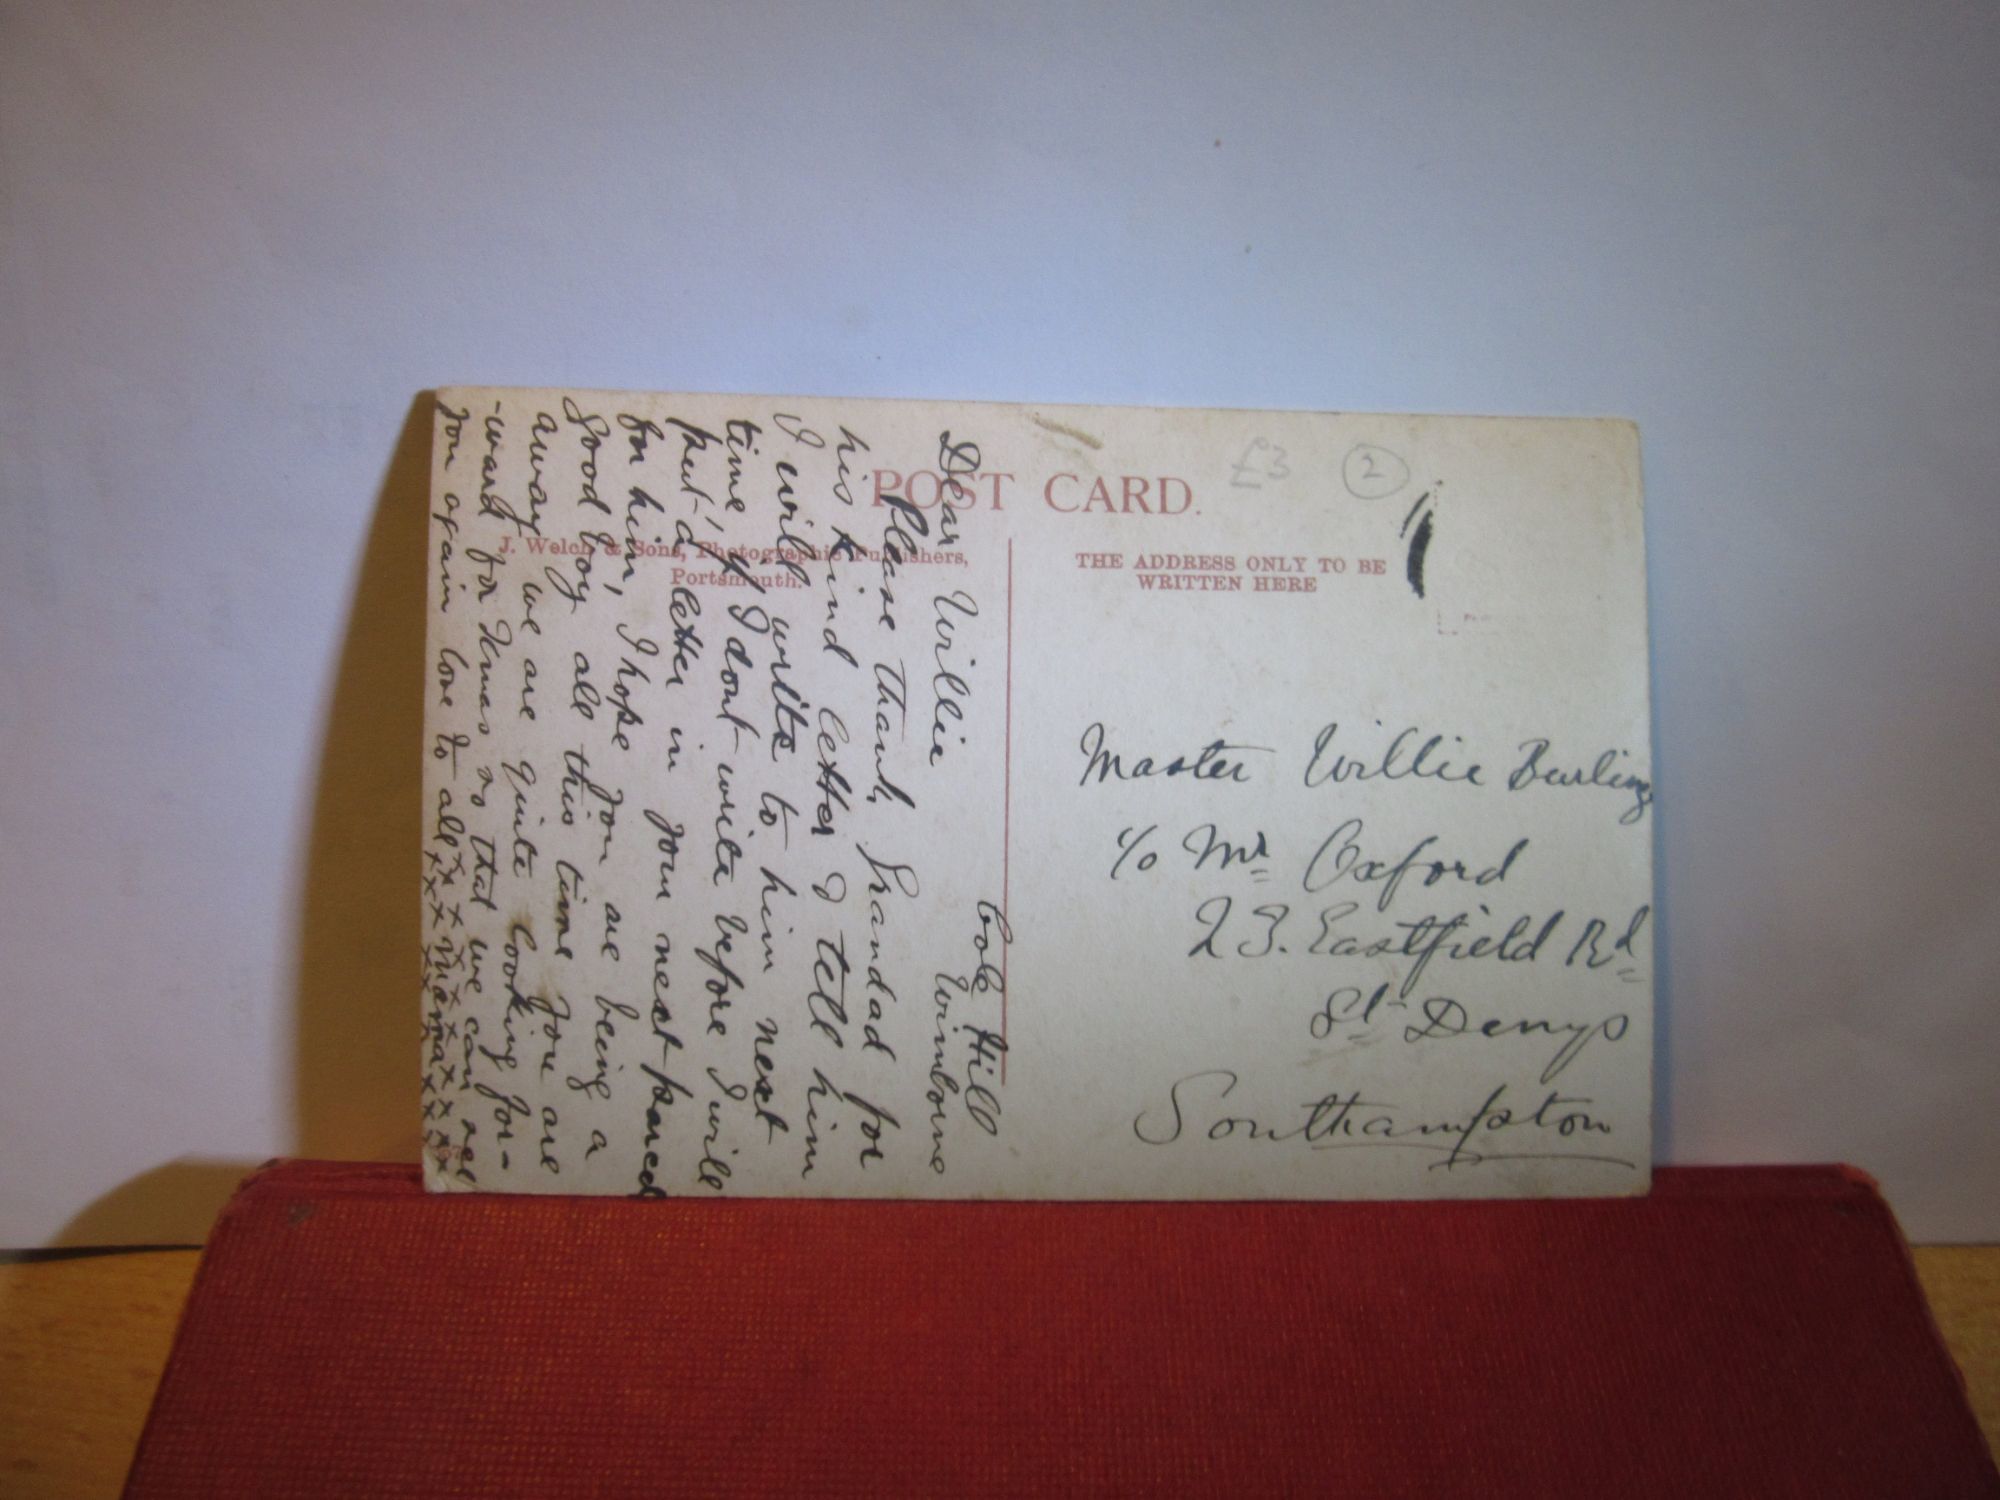 POST CARD.
£3
2
J. Welch & Sons, Photographic Publishers,
Portsmouth.
THE ADDRESS ONLY TO BE
WRITTEN HERE
Cole Hill
Wimborne
Dear Willie
Please thank Grandad for
his kind letter & tell him
I will write to him next
time, if I dont write before I will
put a letter in your next parcel
for him, I hope you are being a
good boy all this time you are
away we are quite looking for-
-ward for Xmas so that we can see
you again love to all x x x x x x x x x
x x x Mama x x x x x
Master Willie Burling
c/o Mrs Oxford
23. Eastfield Rd
St Denys
Southampton